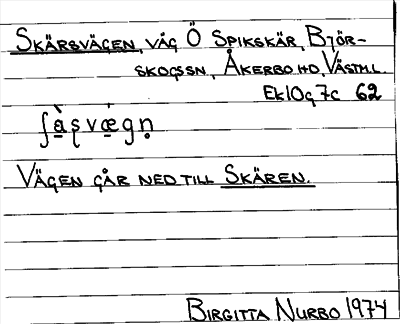 SKÄRSVÄGEN, VÄG Ö SPIKSKÄR, BJÖR-
SKOGSSN, ÅKERBO HD, VÄSTML.
Ek10g7c 62
ʃæ̀ʂvæ̀gṇ
VÄGEN GÅR NED TILL SKÄREN.
BIRGITTA NURBO 1974